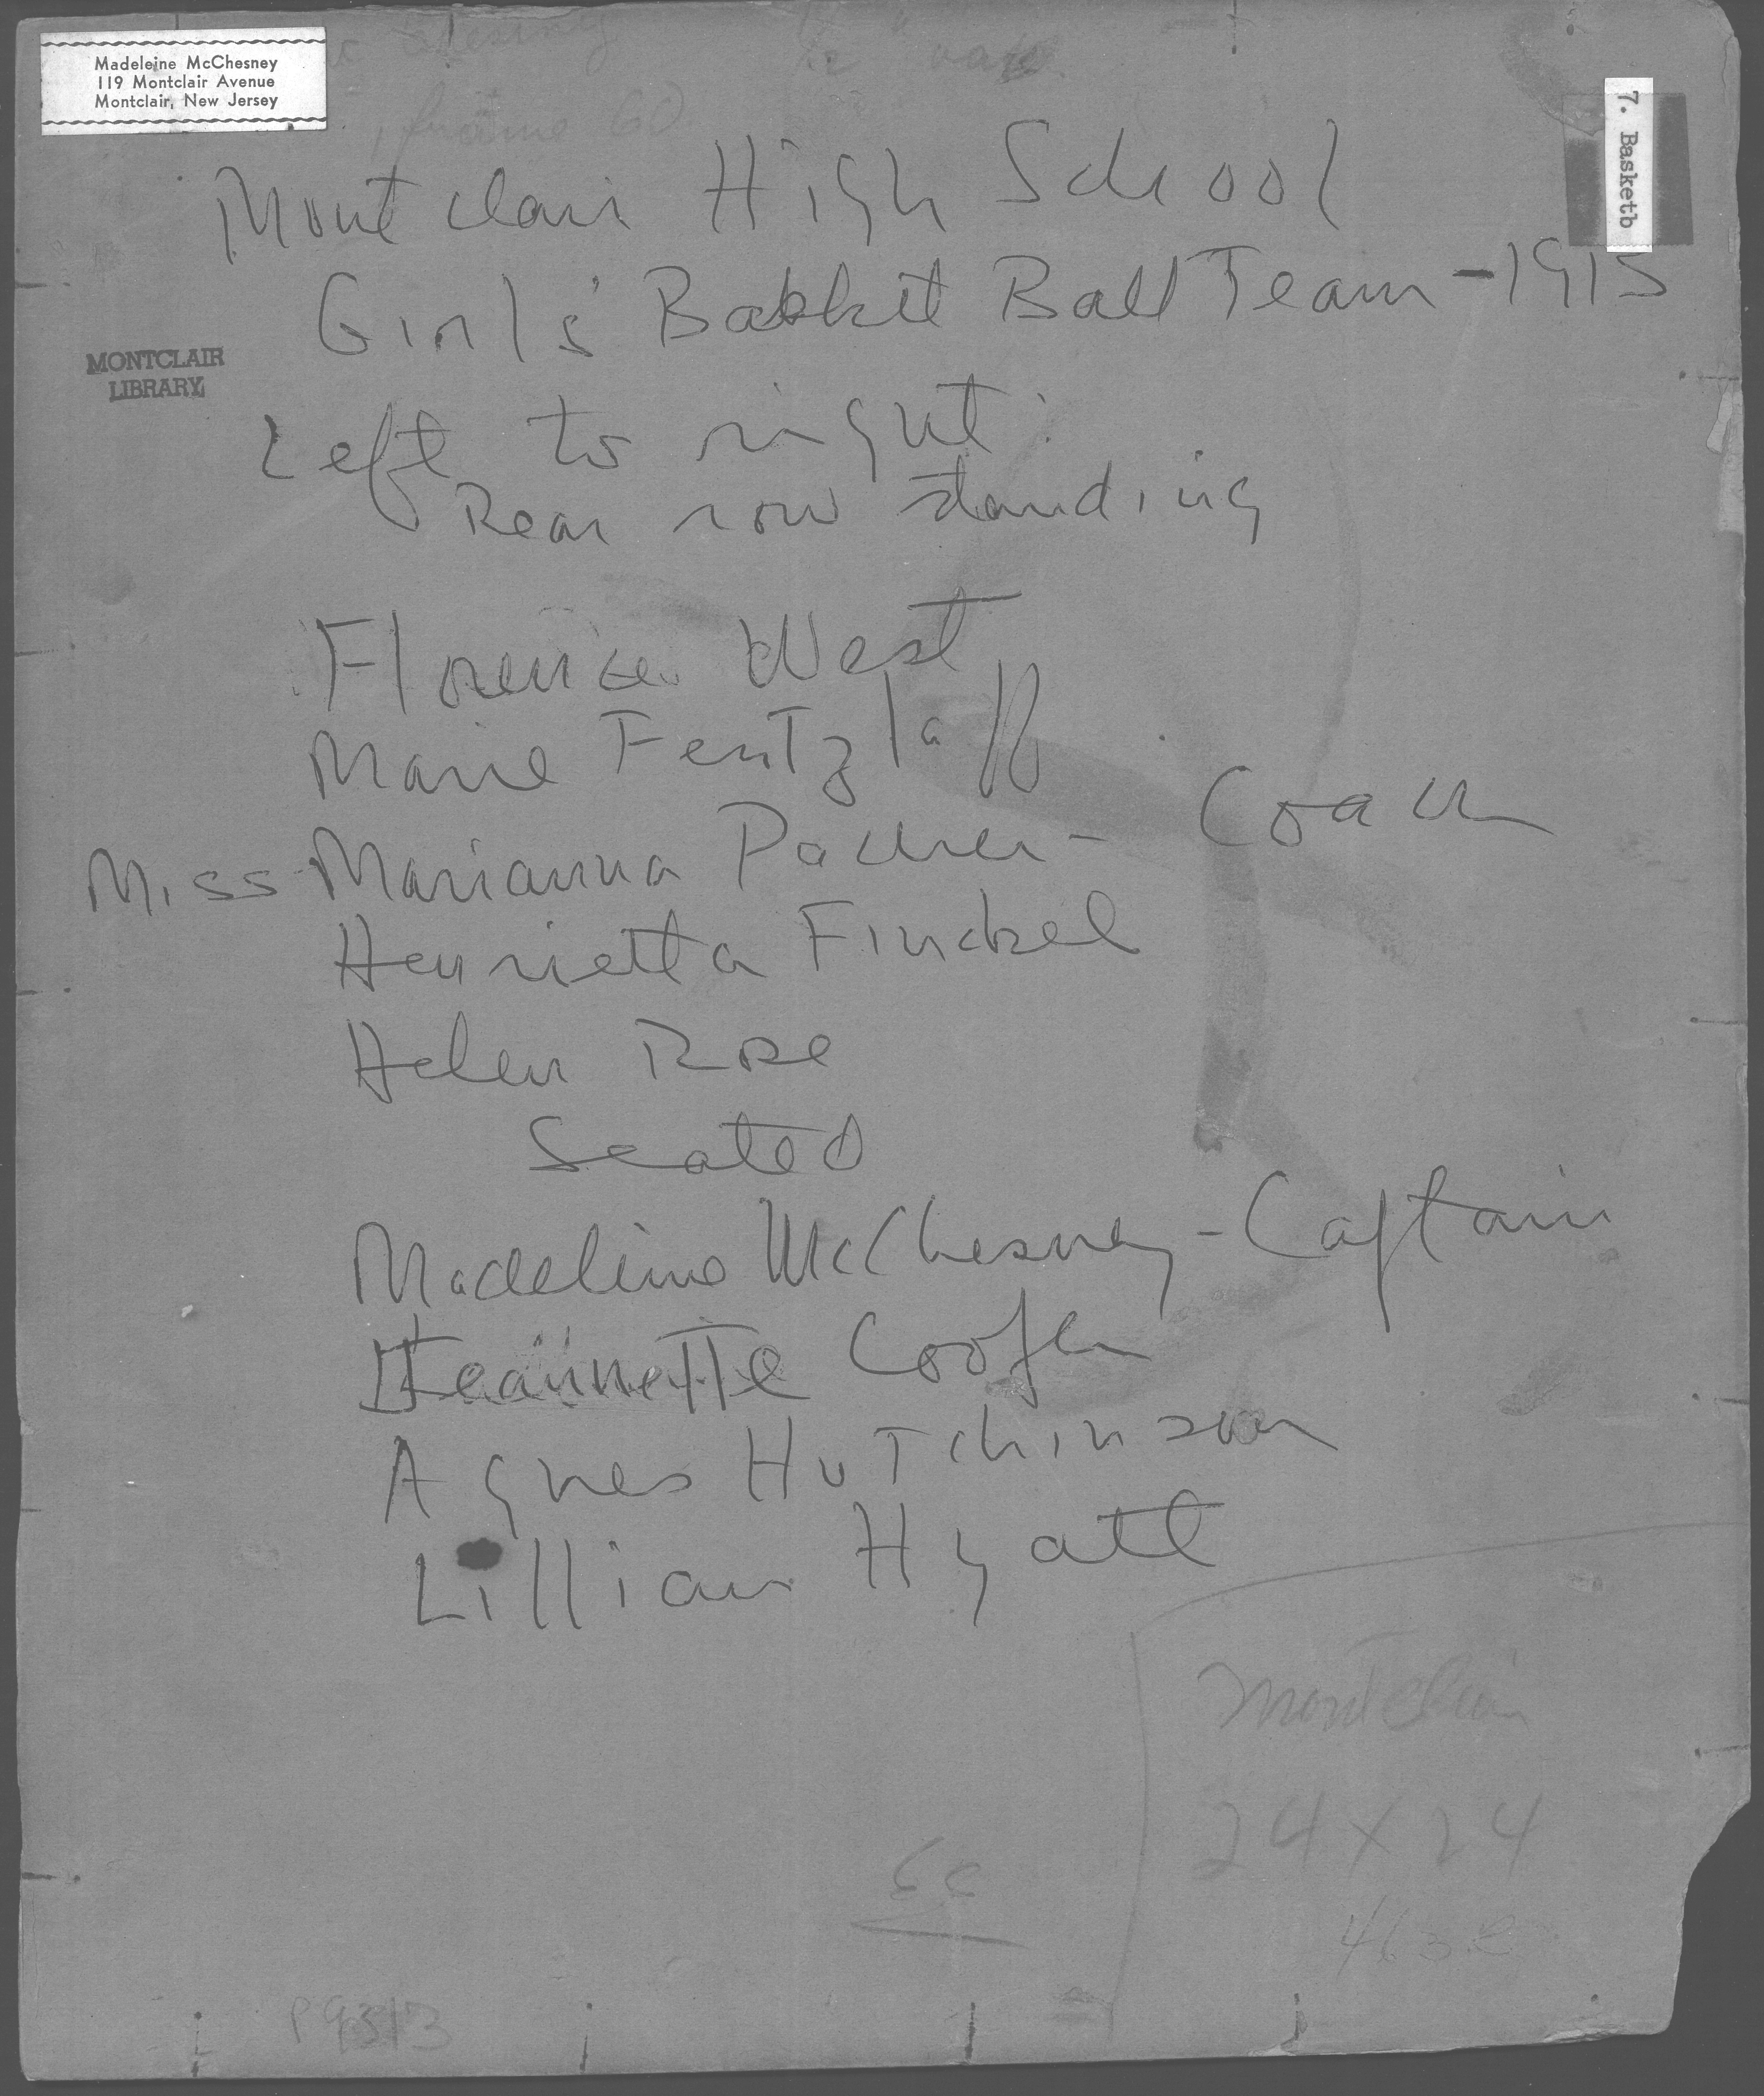 Madeleine McChesney
119 Montclair Avenue
Montclair, New Jersey
7. Basketb
frame
Montclair High School
Girl's Basket Ball Team - 1915
MONTCLAIR
LIBRARY
Left to right:
Rear row standing
Florence West
Marie Fentzlaff
Miss Marianna Packer - Coach
Henrietta Finckel
Helen Rose
Seated
Madeline McChesney - Captain
Jeannette Cooper
Agnes Hutchinson
Lillian Hyatt
Montclair
24 x 24
P9313